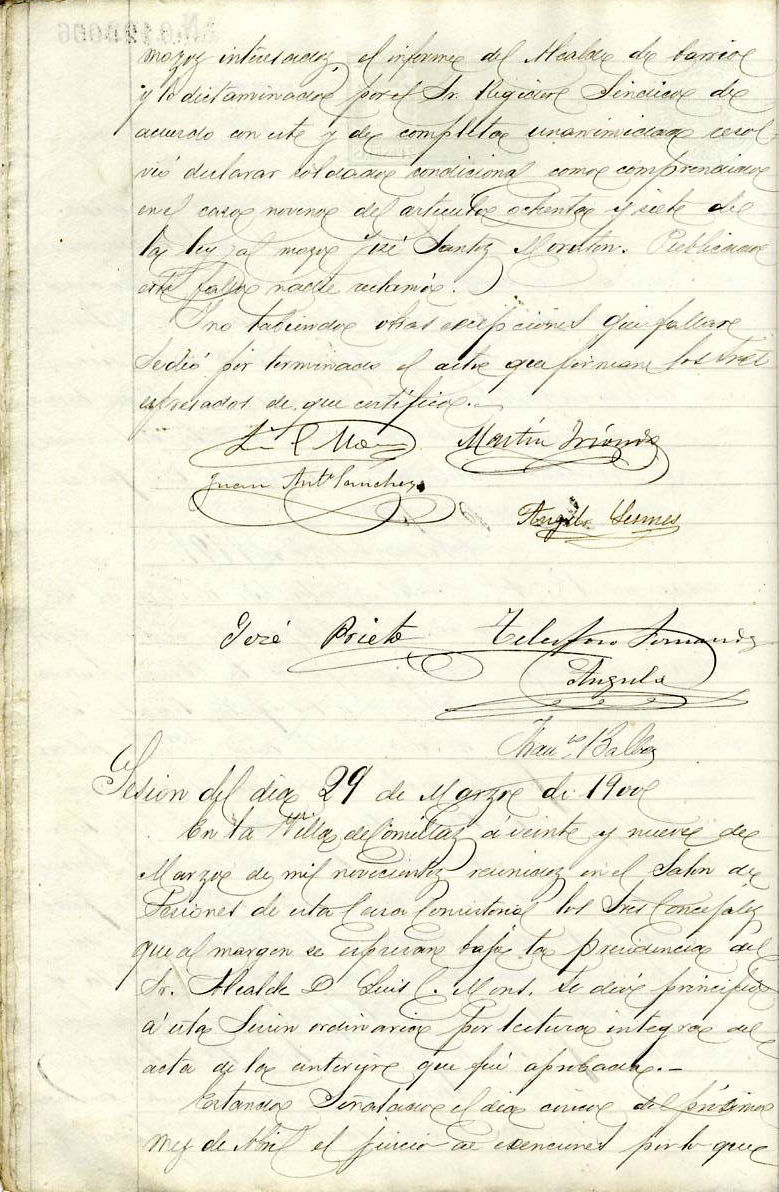 mozos interesados, el informe del Alcalde de barrio
y lo dictaminado por el Sr. Regidor Sindico de
acuerdo con este y de completa unanimidad resol-
vió declarar soldado condicional como comprendido
en el caso noveno del articulo ochenta y siete de
la ley al mozo José Santos Publicado
este fallo nadie reclamó.
Y no habiendo otras escepciones que fallar
se dió por terminado el acto que firman los Sres
espresados de que certifico.-
Martín
Juan Antº Sanchez
Angel Lesmes
José Prieto Telesforo Fernandez
Angulo
Franco Balboa
Sesion del dia 29 de Marzo de 1900
En la Villa de Comillas á veinte y nueve de
Marzo de mil novecientos reunidos en el Salon de
Sesiones de esta Casa Consistorial los Sres Concejales
que al margen se espresan bajo la presidencia del
Sr. Alcalde D. Luis C. Mons, se dió principio
á esta Sesion ordinaria por lectura integra del
acta de la anterior que fué aprobada.-
Estando Señalado el dia cinco del próximo
mes de Abril el juicio de exenciones por lo que